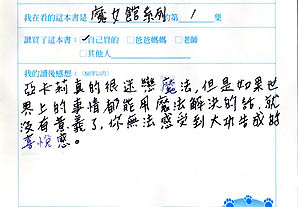 我在看的這本書是 魔女館系列 的第 1 集
誰買了這本書：✓自己買的 □爸爸媽媽 □老師
□其他人
我的讀後感想：(50字以內)
亞卡莉真的很迷戀魔法，但是如果世
界上的事情都能用魔法解決的話，就
沒有意義了，你無法感受到大功告成的
喜悅感。